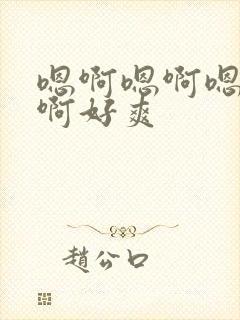 嗯啊嗯啊嗯
啊好爽
趙公口